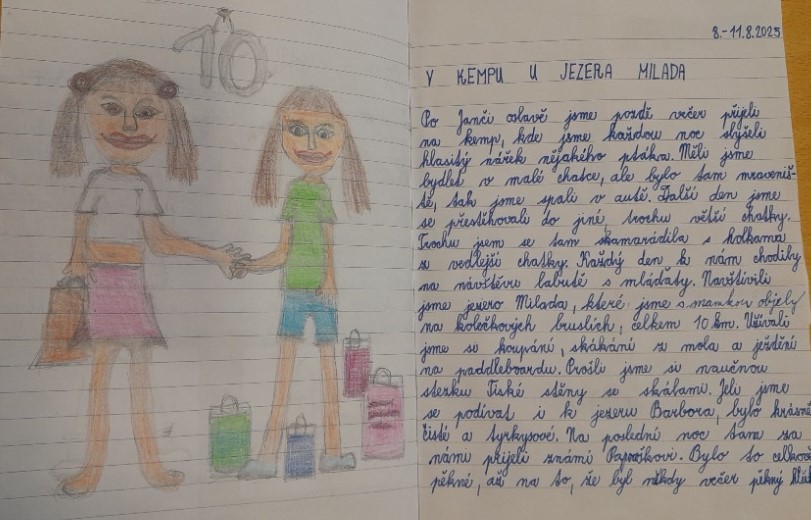 10
8.-11.8.2025
V KEMPU U JEZERA MILADA
Po Janči oslavě jsme pozdě večer přijeli
na kemp, kde jsme každou noc slyšeli
hlasitý nářek nějakého ptáka. Měli jsme
bydlet v malé chatce, ale bylo tam mraveniš-
tě, tak jsme spali v autě. Další den jsme
se přestěhovali do jiné, trochu větší chatky.
Trochu jsem se tam skamarádila s holkama
z vedlejší chatky. Každý den k nám chodily
na návštěvu labutě s mláďaty. Navštívili
jsme jezero Milada, které jsme s mamkou objely
na kolečkových bruslích, celkem 10 km. Užívali
jsme si koupání, skákání z mola a ježdění
na paddleboardu. Prošli jsme si naučnou
stezku Tiské stěny se skálami. Jeli jsme
se podívat i k jezeru Barbora, bylo krásně
čisté a tyrkysové. Na poslední noc tam za
námi přijeli známí. Bylo to celkově
pěkné, až na to, že byl někdy večer pěkný